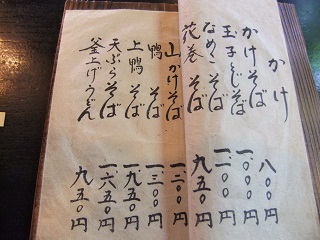 かけ
かけそば 八〇〇円
玉子とじそば 一、〇〇〇円
なめこそば
花巻そば 九五〇円
山かけそば 一、二〇〇円
鴨そば 一、三〇〇円
上鴨そば 一、九五〇円
天ぷらそば 一、六五〇円
釜上げうどん 九五〇円